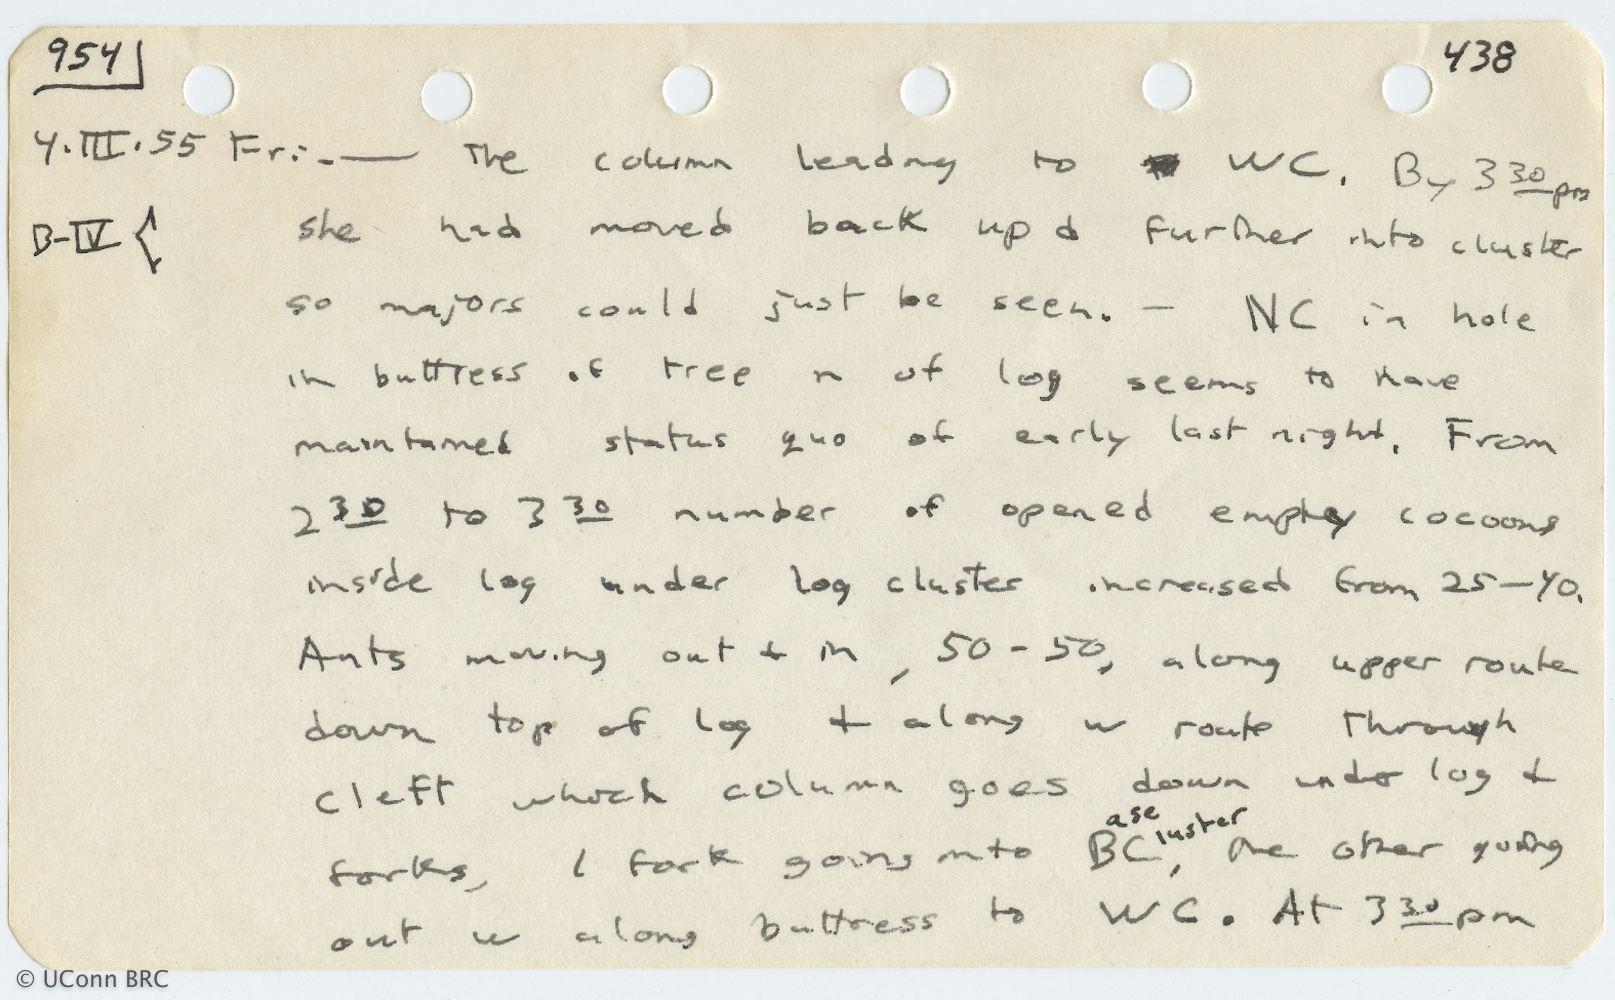 954 438
4.III.55 Fri. — The column leading to WC. By 3 30 pm
B-IV { she had moved back up & further into cluster
so majors could just be seen. — NC in hole
in buttress of tree n of log seems to have
maintained status quo of early last night. From
2 30 to 3 30 number of opened empty cocoons
inside log under log cluster increased from 25-40.
Ants moving out & in, 50-50, along upper route
down top of log & along w route through
cleft which column goes down under log &
forks, 1 fork going into BC, the other going
ase luster
out w along buttress to WC. At 3 30 pm
© UConn BRC